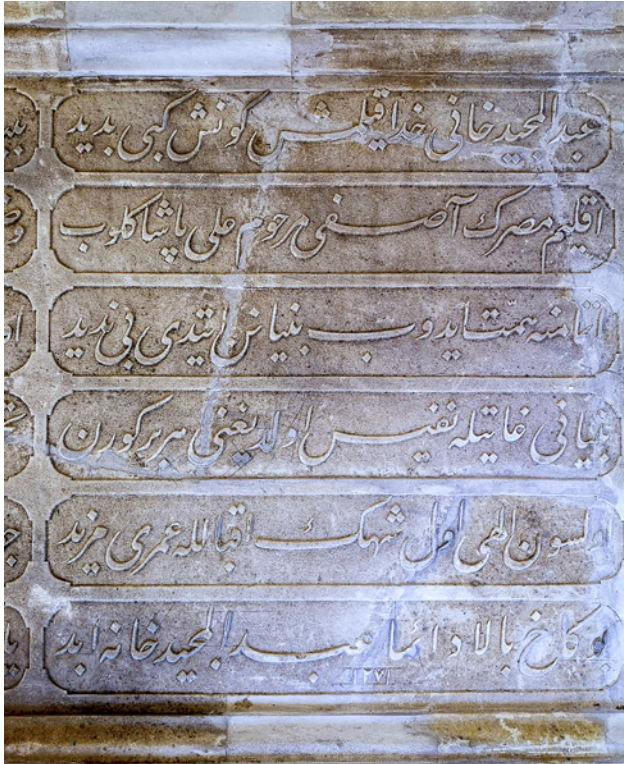 عبد المجيد خانى خدا قيلمش كونش كبى بديد
اقليم مصرك آصفى مرحوم على پاشا كلوب
اتمامنه همت ايدوب بنيانن ايتدى بى نديد
بنيانى غايتله نفيس اولديغنى هر بر كورن
اولسون الهى اول شهك اقباللە عمرى مزيد
بو كاخ بالا دائما عبد المجيد خانه ابد
١٢٧١